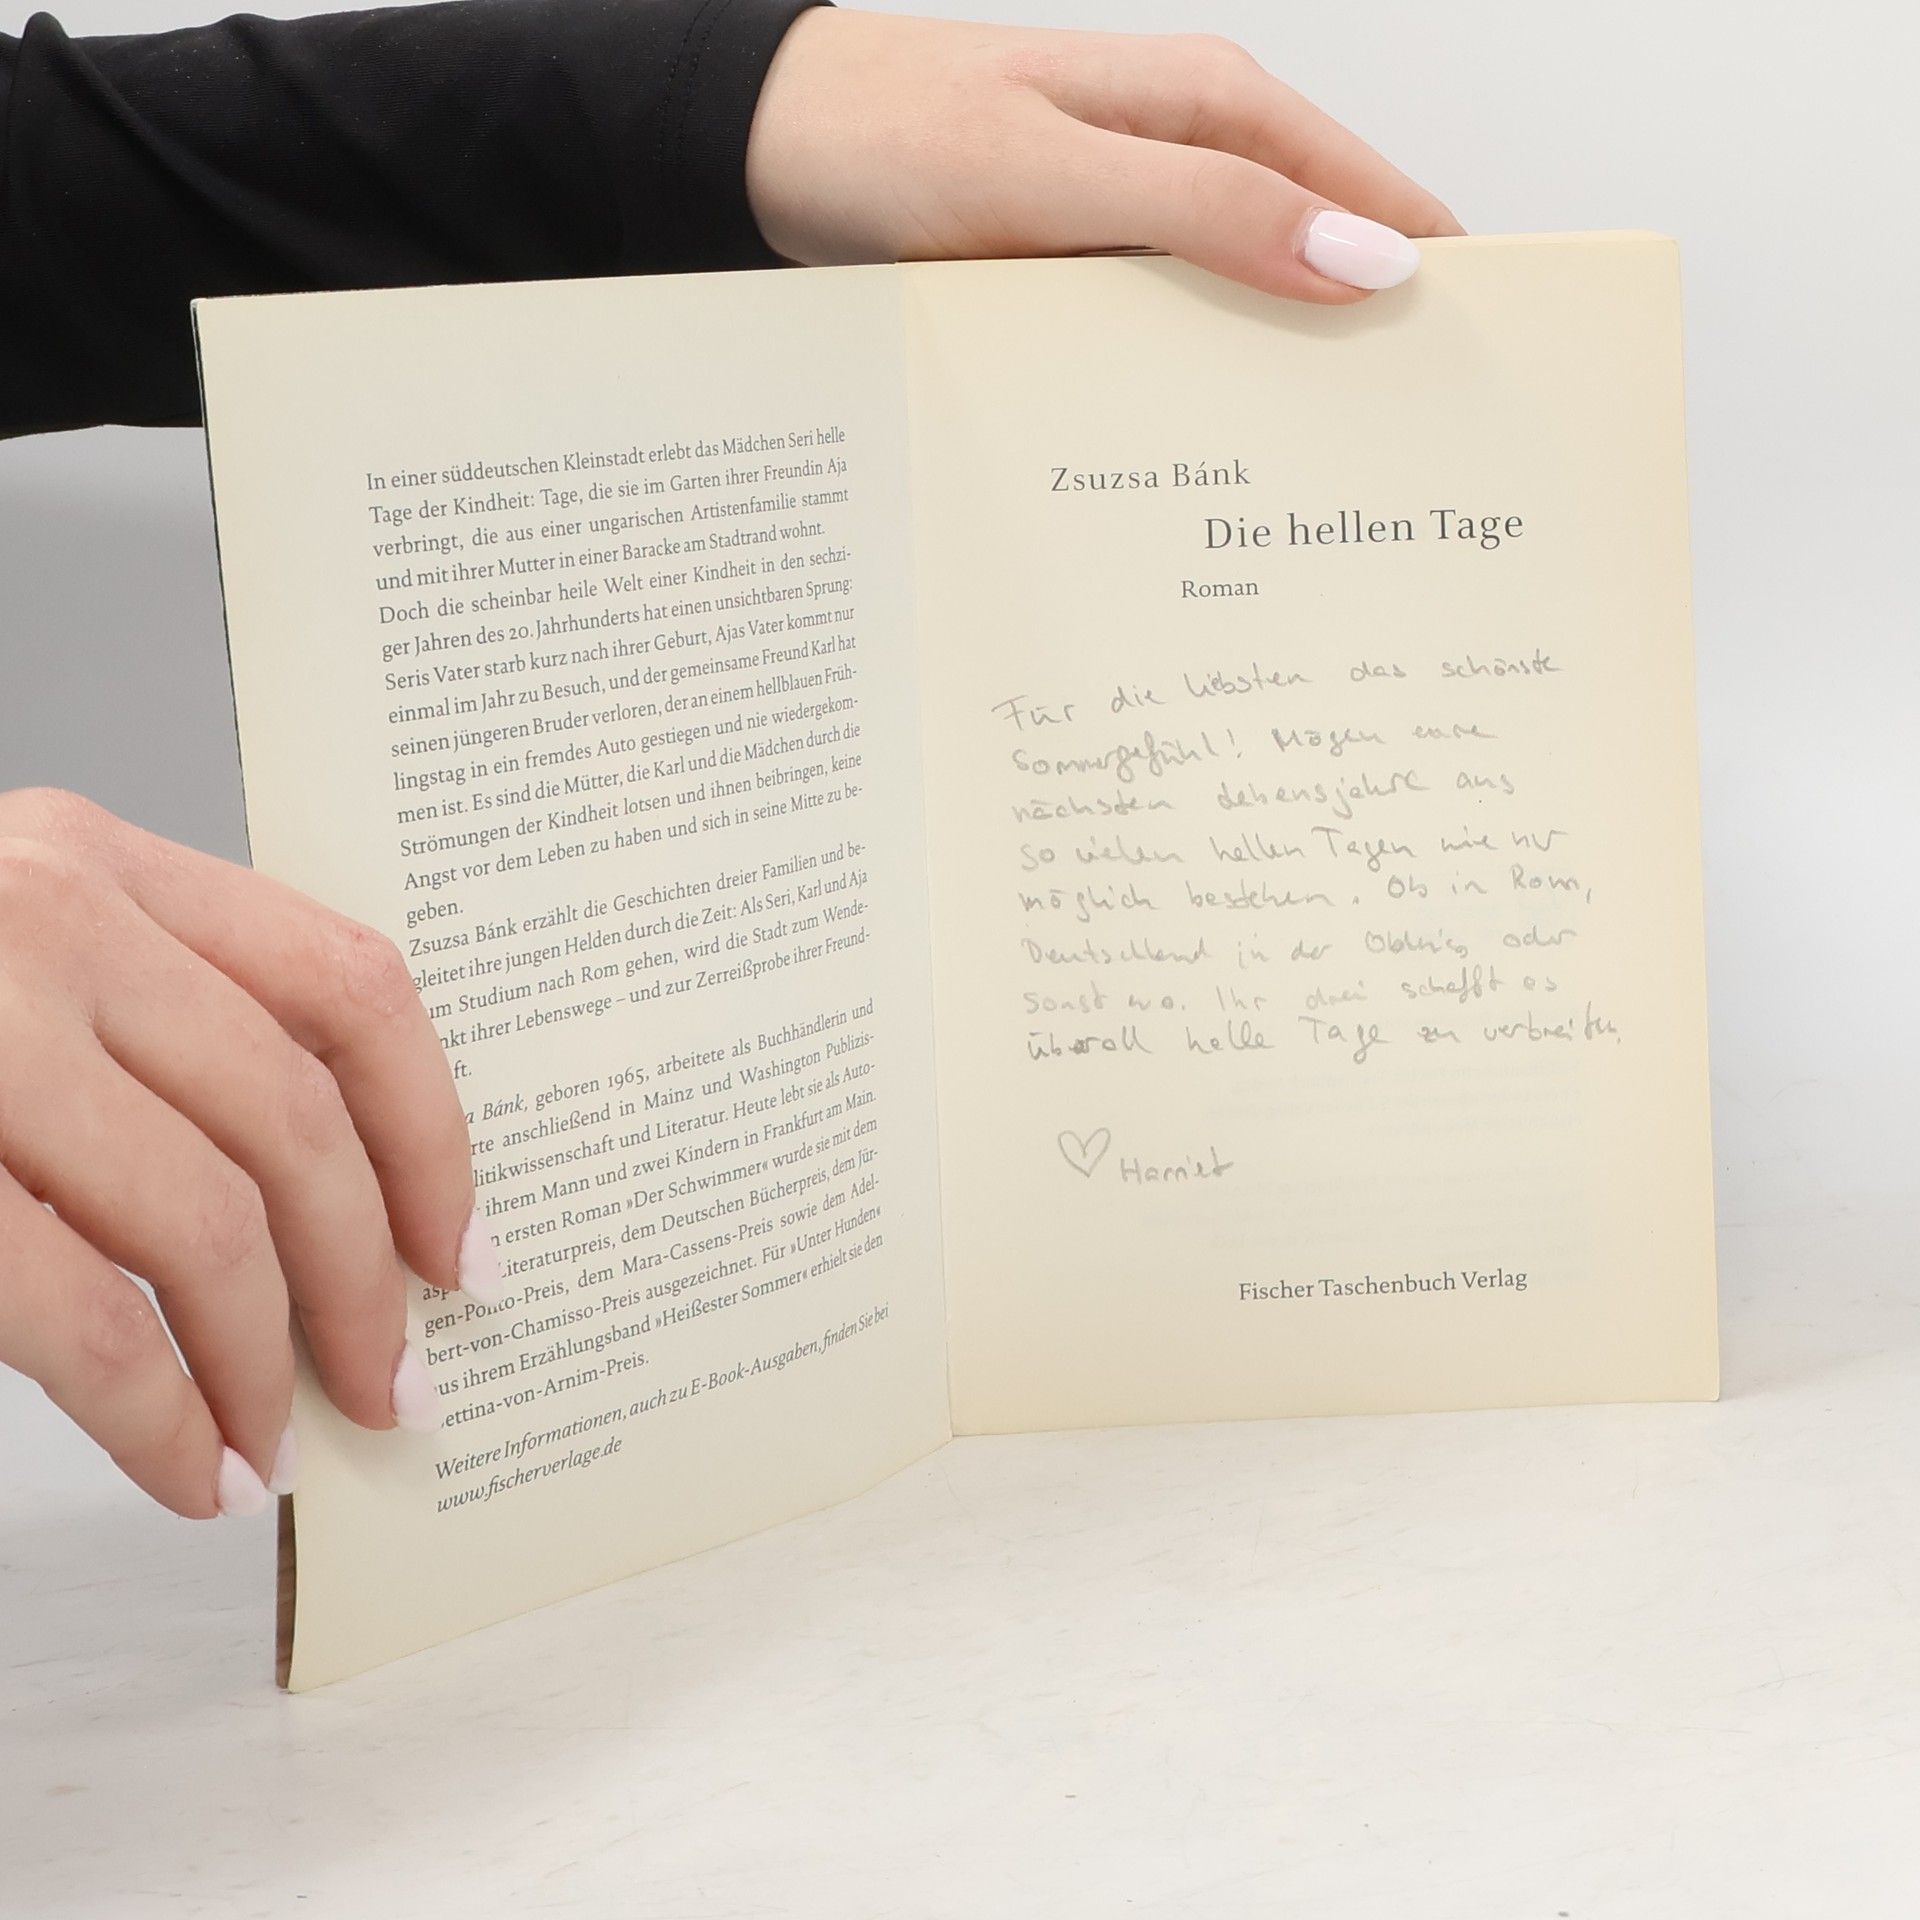 In einer süddeutschen Kleinstadt erlebt das Mädchen Seri helle
Tage der Kindheit: Tage, die sie im Garten ihrer Freundin Aja
verbringt, die aus einer ungarischen Artistenfamilie stammt
und mit ihrer Mutter in einer Baracke am Stadtrand wohnt.
Doch die scheinbar heile Welt einer Kindheit in den sechzi-
ger Jahren des 20. Jahrhunderts hat einen unsichtbaren Sprung:
Seris Vater starb kurz nach ihrer Geburt, Ajas Vater kommt nur
einmal im Jahr zu Besuch, und der gemeinsame Freund Karl hat
seinen jüngeren Bruder verloren, der an einem hellblauen Früh-
lingstag in ein fremdes Auto gestiegen und nie wiedergekom-
men ist. Es sind die Mütter, die Karl und die Mädchen durch die
Strömungen der Kindheit lotsen und ihnen beibringen, keine
Angst vor dem Leben zu haben und sich in seine Mitte zu be-
geben.
Zsuzsa Bánk erzählt die Geschichten dreier Familien und be-
gleitet ihre jungen Helden durch die Zeit: Als Seri, Karl und Aja
um Studium nach Rom gehen, wird die Stadt zum Wende-
nkt ihrer Lebenswege – und zur Zerreißprobe ihrer Freund-
ft.
a Bánk, geboren 1965, arbeitete als Buchhändlerin und
rte anschließend in Mainz und Washington Publizis-
litikwissenschaft und Literatur. Heute lebt sie als Auto-
ihrem Mann und zwei Kindern in Frankfurt am Main.
n ersten Roman »Der Schwimmer« wurde sie mit dem
asp Literaturpreis, dem Deutschen Bücherpreis, dem Jür-
gen-Ponto-Preis, dem Mara-Cassens-Preis sowie dem Adel-
bert-von-Chamisso-Preis ausgezeichnet. Für »Unter Hunden«
us ihrem Erzählungsband »Heißester Sommer« erhielt sie den
ettina-von-Arnim-Preis.
Weitere Informationen, auch zu E-Book-Ausgaben, finden Sie bei
www.fischerverlage.de
Zsuzsa Bánk
Die hellen Tage
Roman
Für die liebsten das schönste
Sommergefühl! Mögen eure
nächsten Lebensjahre aus
so vielen hellen Tagen wie nur
möglich bestehen. Ob in Rom,
Deutschland in der oder
sonst wo. Ihr drei schafft es
überall helle Tage zu verbreiten.
Harriet
Fischer Taschenbuch Verlag